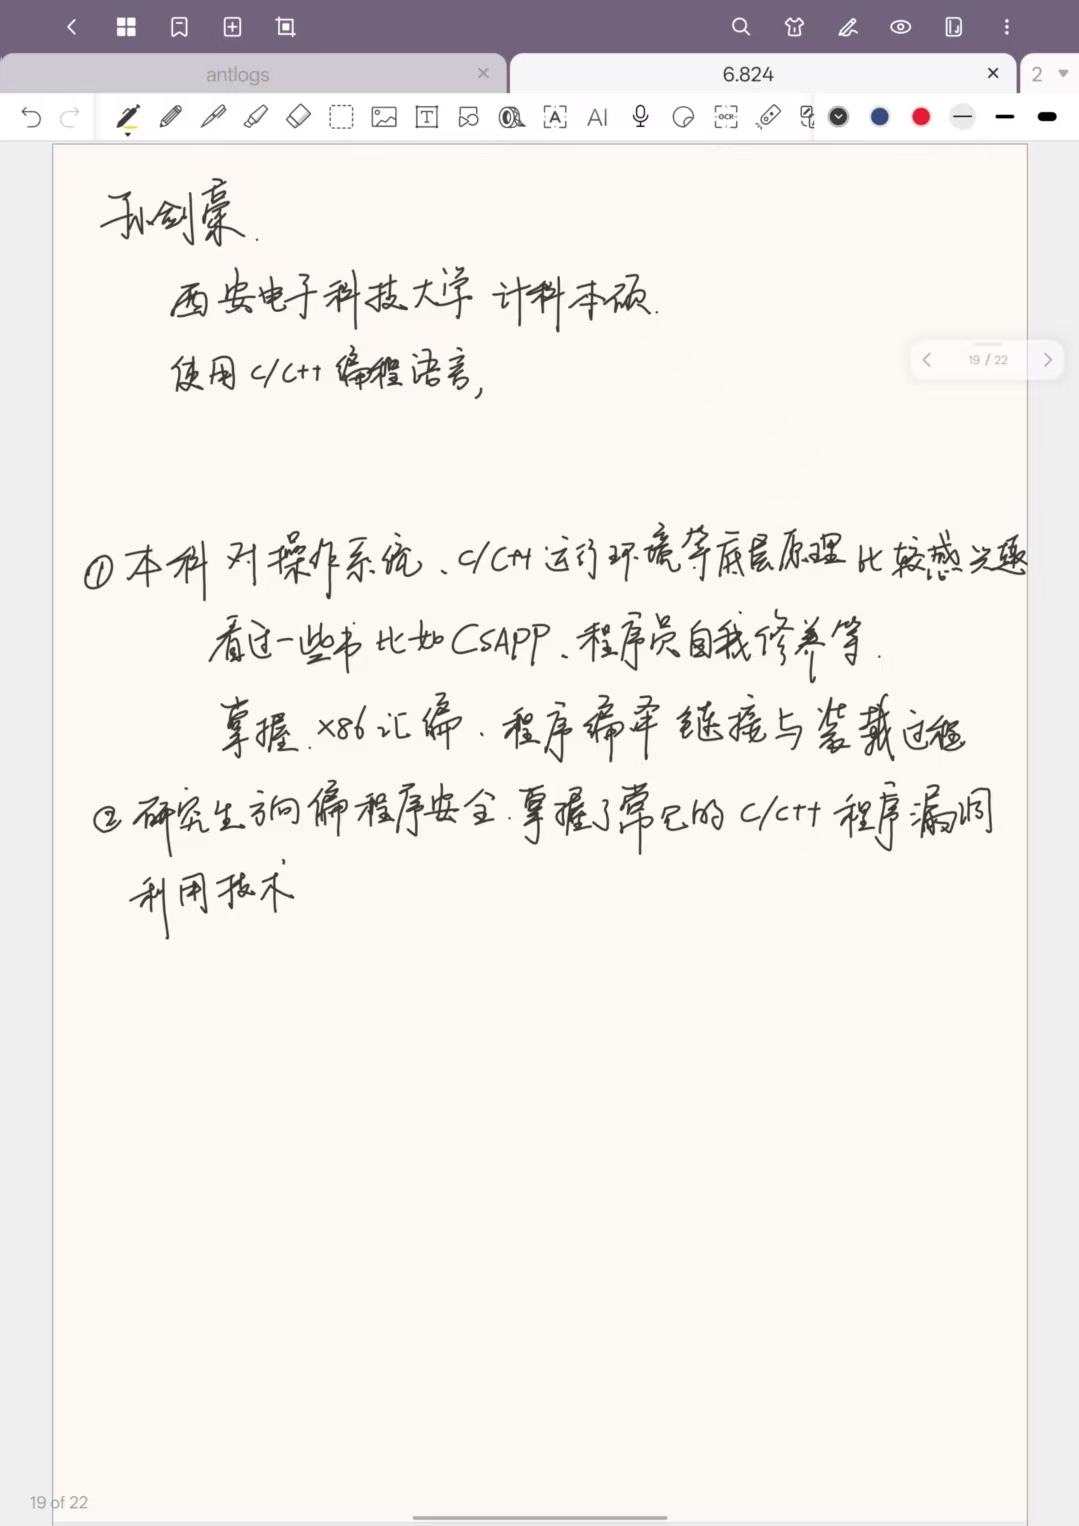 antlogs
6.824
2
T
A
AI
OCR
孙剑豪.
西安电子科技大学 计科本硕.
19 / 22
使用 C/C++ 编程语言,
① 本科 对操作系统、C/C++ 运行环境等底层原理 比较感兴趣
看过一些书 比如 CSAPP、程序员自我修养等.
掌握 x86汇编、程序编译 链接与装载过程
② 研究生方向偏程序安全.掌握了常见的 C/C++ 程序漏洞
利用技术
19 of 22